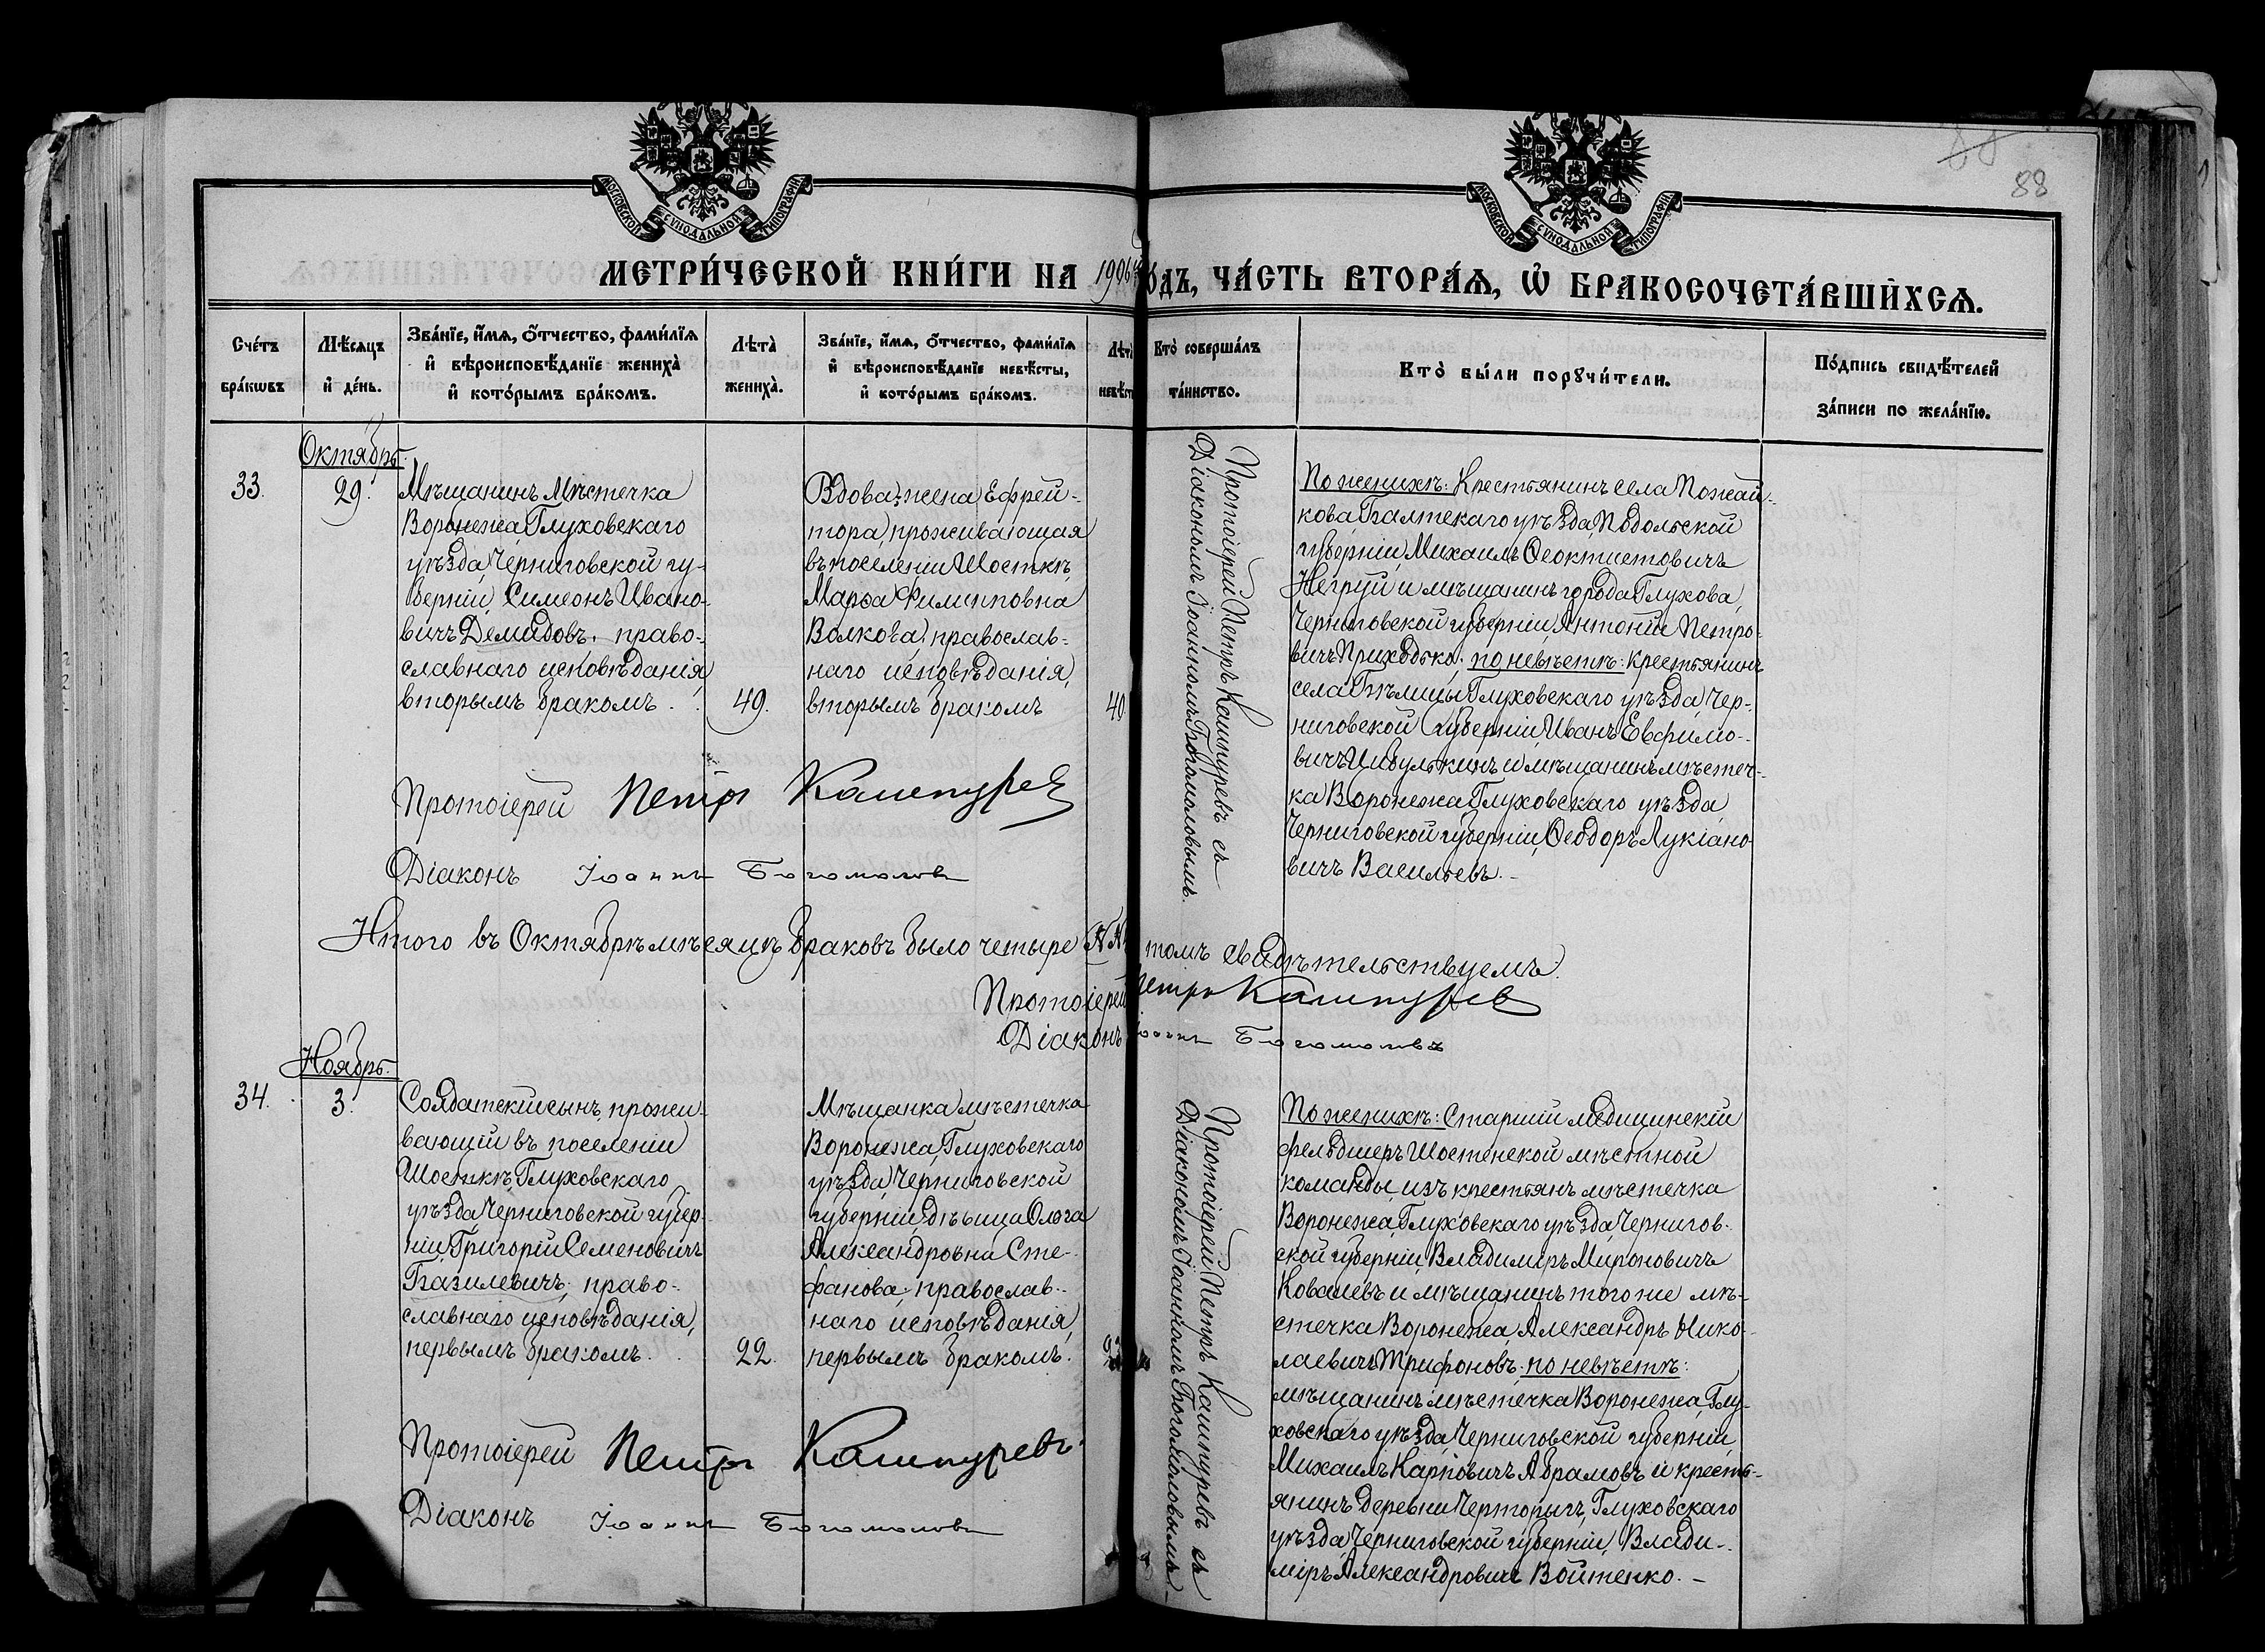 МОСКОВСКОЙ СУНОДАЛЬНОЙ ТИПОГРАФІИ
МОСКОВСКОЙ СУНОДАЛЬНОЙ ТИПОГРАФІИ
88
МЕТРИ́ЧЕСКОЙ КНИ́ГИ НА 1906й го́дъ, ЧА́СТЬ ВТОРА́Ѧ, Ѽ БРАКОСОЧЕТА́ВШИХСѦ.
Сче́тъ
бра́кѡвъ
Мѣ́сяцъ
и҆ де́нь.
Зва́нїе, и҆́мѧ, ѻ҆́тчество, фами́лїѧ
и҆ вѣроисповѣ́данїе жениха̀
и҆ кото́рымъ бра́комъ.
Лѣта̀
жениха̀.
Зва́нїе, и҆́мѧ, ѻ҆́тчество, фами́лїѧ
и҆ вѣроисповѣ́данїе невѣ́сты,
и҆ кото́рымъ бра́комъ.
Лѣта̀
невѣст
Кто̀ соверша́лъ
та́инство.
Кто̀ бы́ли порꙋчи́тели.
По́дпись свидѣ́телей
за́писи по жела́нїю.
Октябрь.
33.
29.
Мѣщанинъ Мѣстечка
Воронежа Глуховскаго
уѣзда, Черниговской гу-
берніи, Симеонъ Ивано-
вичъ Демидовъ, право-
славнаго исповѣданія,
вторымъ бракомъ.
49.
Вдова, жена Ефрей-
тора, проживающая
въ поселеніи Шосткѣ,
Марѳа Филипповна
Волкова, православ-
наго исповѣданія,
вторымъ бракомъ
40
Протоіерей Петръ Кашпуревъ съ
Діакономъ Іоанномъ Богомоловымъ.
По женихѣ: Крестьянинъ села Пожай-
кова, Балтскаго уѣзда, Подольской
губерніи, Михаилъ Ѳеоктистовичъ
Негруй и мѣщанинъ города Глухова,
Черниговской губерніи, Антоній Петро-
вичъ Приходько; по невѣстѣ: крестьянинъ
села Бѣлицы Глуховскаго уѣзда, Чер-
ниговской губерніи, Иванъ Евфимо-
вичъ Цибулькинъ и мѣщанинъ мѣстеч-
ка Воронежа, Глуховскаго уѣзда
Черниговской губерніи, Ѳеодоръ Лукіано-
вичъ Васильевъ. –
Протоіерей Петръ Кашпурев
Діаконъ Іоаннъ Богомоловъ
Итого въ Октябрѣ мѣсяцѣ браковъ было четыре томъ свидѣтельствуемъ:
Протоіерей Петръ Кашпурев
Діаконъ Іоаннъ Богомоловъ
Ноябрь.
34.
3.
Солдатскій сынъ, прожи-
вающій въ поселеніи
Шосткѣ, Глуховскаго
уѣзда, Черниговской губер-
ніи, Григорій Семеновичъ
Базилевичъ, право-
славнаго исповѣданія,
первымъ бракомъ.
22.
Мѣщанка мѣстечка
Воронежа, Глуховскаго
уѣзда, Черниговской
губерніи, дѣвица Ольга
Александровна Сте-
фанова, православ-
наго исповѣданія,
первымъ бракомъ.
Протоіерей Петръ Кашпуревъ съ
Діакономъ Іоанномъ Богомоловымъ. –
По женихѣ: Старшій медицинскій
фельдшеръ Шостенской мѣстной
команды, изъ крестьянъ мѣстечка
Воронежа, Глуховскаго уѣзда, Чернигов-
ской губерніи, Владиміръ Мироновичъ
Ковалевъ и мѣщанинъ того же мѣ-
стечка Воронежа, Александръ Нико-
лаевичъ Трифоновъ; по невѣстѣ:
мѣщанинъ мѣстечка Воронежа, Глу-
ховскаго уѣзда, Черниговской губерніи,
Михаилъ Карповичъ Абрамовъ и кресть-
янинъ деревни Чорторыгъ, Глуховскаго
уѣзда, Черниговской губерніи, Влади-
міръ Александровичъ Войтенко. –
Протоіерей Петръ Кашпуревъ
Діаконъ Іоаннъ Богомоловъ